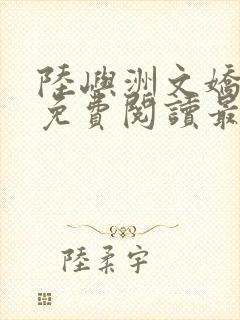 陸嶼洲文嬌
免費閱讀最
陸柔宇